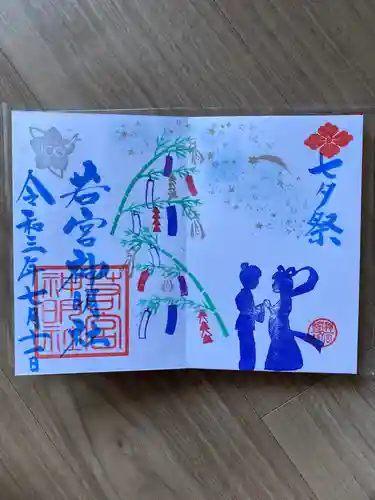 七夕祭
若宮神明社
令和三年七月七日
若宮神明社